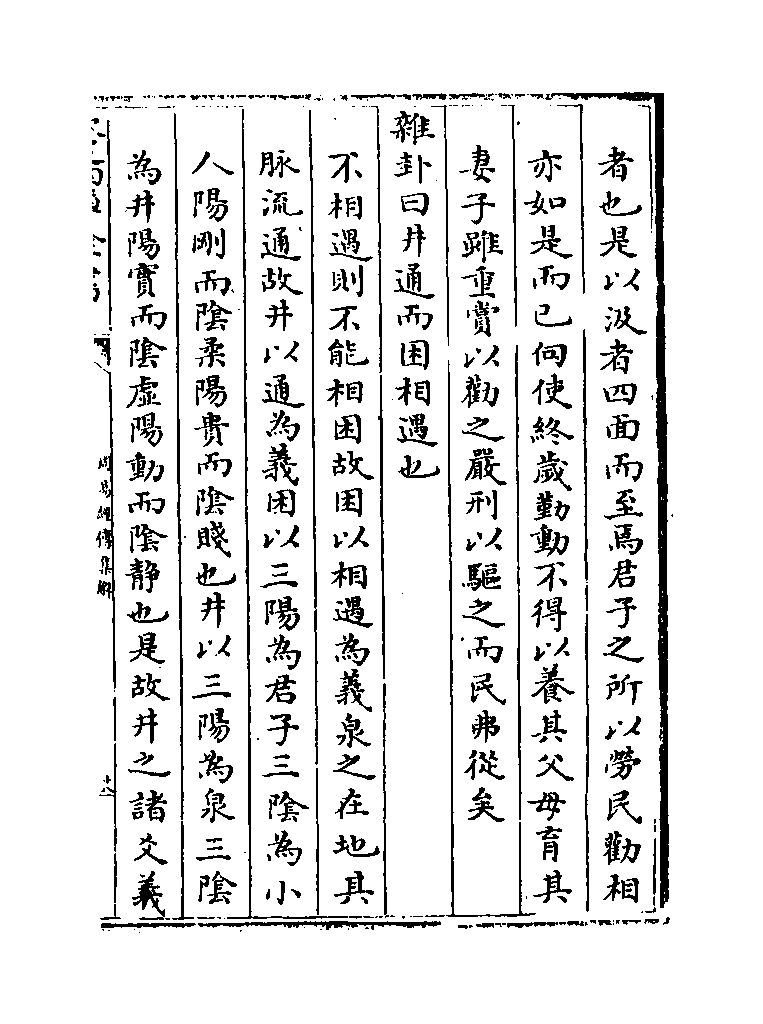 者也是以汲者四面而至焉君子之所以勞民勸相
亦如是而已向使終歲勤動不得以養其父母育其
妻子雖重賞以勸之嚴刑以驅之而民弗從矣
雜卦曰井通而困相遇也
不相遇則不能相困故困以相遇為義泉之在地其
脉流通故井以通為義困以三陽為君子三陰為小
人陽剛而陰柔陽貴而陰賤也井以三陽為泉三陰
為井陽實而陰虛陽動而陰静也是故井之諸爻義
周易經傳集解
十八